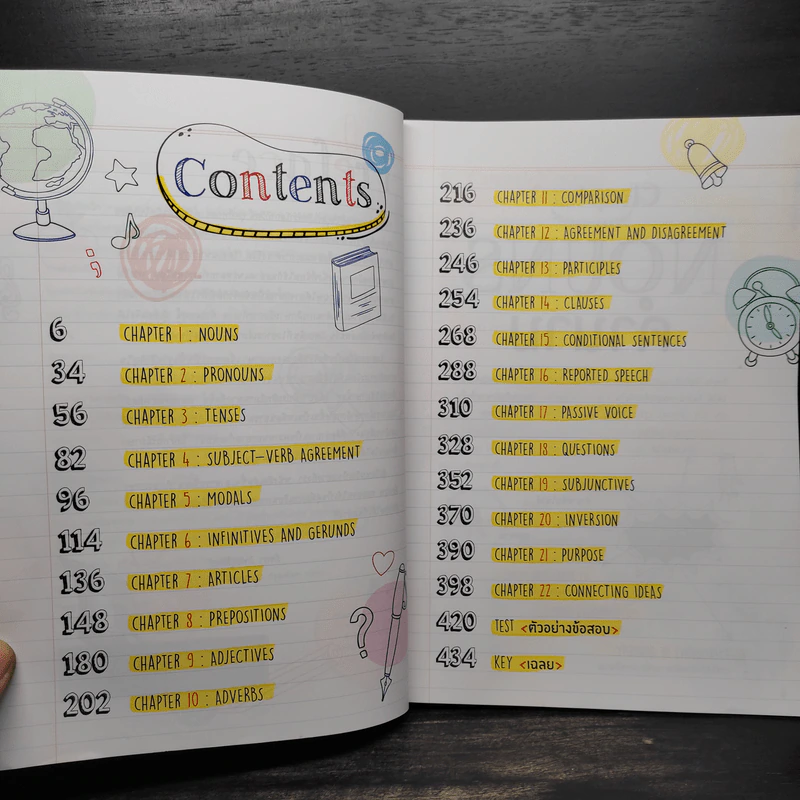 Contents
6 CHAPTER 1 : NOUNS
34 CHAPTER 2 : PRONOUNS
56 CHAPTER 3 : TENSES
82 CHAPTER 4 : SUBJECT–VERB AGREEMENT
96 CHAPTER 5 : MODALS
114 CHAPTER 6 : INFINITIVES AND GERUNDS
136 CHAPTER 7 : ARTICLES
148 CHAPTER 8 : PREPOSITIONS
180 CHAPTER 9 : ADJECTIVES
202 CHAPTER 10 : ADVERBS
216 CHAPTER 11 : COMPARISON
236 CHAPTER 12 : AGREEMENT AND DISAGREEMENT
246 CHAPTER 13 : PARTICIPLES
254 CHAPTER 14 : CLAUSES
268 CHAPTER 15 : CONDITIONAL SENTENCES
288 CHAPTER 16 : REPORTED SPEECH
310 CHAPTER 17 : PASSIVE VOICE
328 CHAPTER 18 : QUESTIONS
352 CHAPTER 19 : SUBJUNCTIVES
370 CHAPTER 20 : INVERSION
390 CHAPTER 21 : PURPOSE
398 CHAPTER 22 : CONNECTING IDEAS
420 TEST <ตัวอย่างข้อสอบ>
434 KEY <เฉลย>